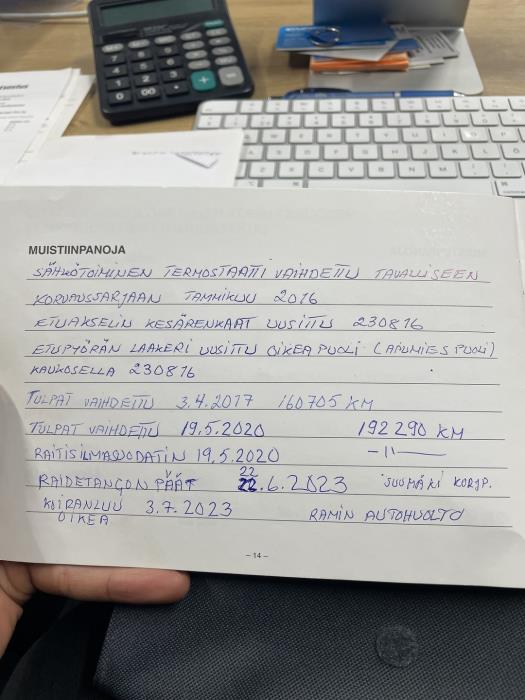 MUISTIINPANOJA
SÄHKÖTOIMINEN TERMOSTAATTI VAIHDETTU TAVALLISEEN
KORVAUSSARJAAN TAMMIKUU 2016
ETUAKSELIN KESÄRENKAAT UUSITTU 230816
ETUPYÖRÄN LAAKERI UUSITTU OIKEA PUOLI (APUMIES PUOLI)
KAUKOSELLA 230816
TULPAT VAIHDETTU 3.4.2017 160705 KM
TULPAT VAIHDETTU 19.5.2020 192290 KM
RAITISILMASUODATIN 19.5.2020 -11-
RAIDETANGON PÄÄT 22.6.2023 SUOMÄKI KORJP.
KOIRANLUU 3.7.2023 RAMIN AUTOHUOLTO
OIKEA
-14-